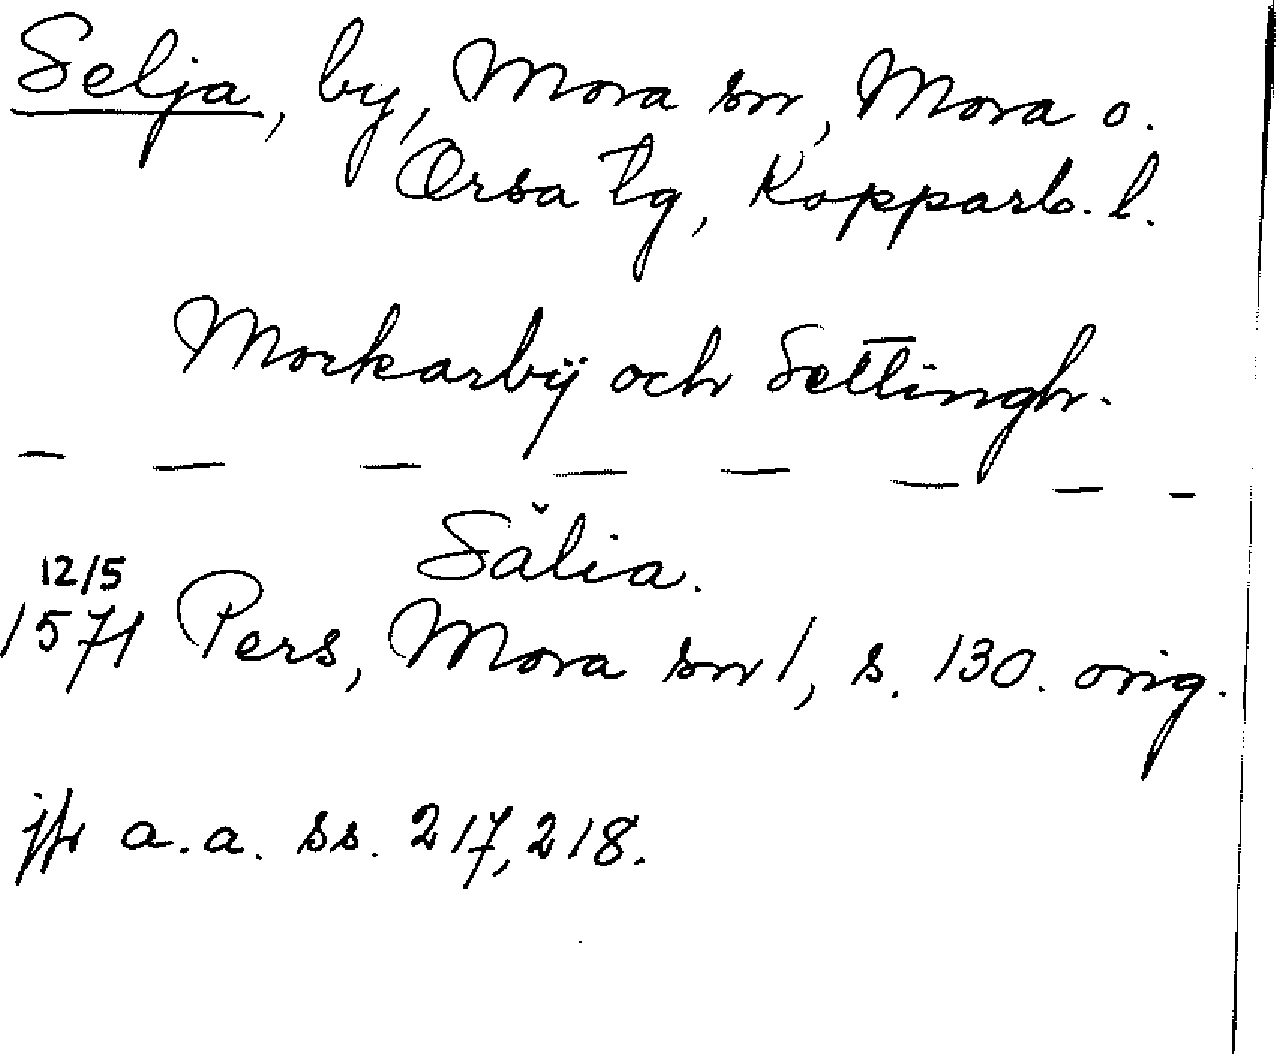 Selja, by, Mora sn, Mora o.
Orsa tg, Kopparb. l.
Morkarbÿ och Settingh.
— — — — — — — —
Sălia.
12/5
1571 Pers, Mora sn 1, s. 130. orig.
jfr a.a. ss. 217, 218.